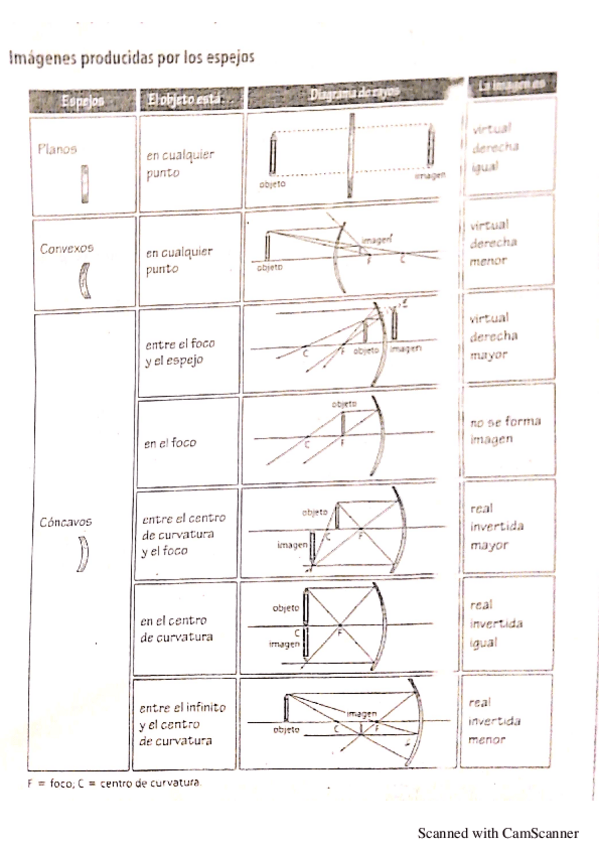 Imágenes producidas por los espejos
Espejos
El objeto está...
Diagrama de rayos
La imagen es
Planos
en cualquier
punto
objeto
imagen
virtual
derecha
igual
Convexos
en cualquier
punto
objeto
imagen
F
C
virtual
derecha
menor
Cóncavos
entre el foco
y el espejo
C
F
objeto
imagen
virtual
derecha
mayor
en el foco
objeto
C
F
no se forma
imagen
entre el centro
de curvatura
y el foco
objeto
imagen
C
F
real
invertida
mayor
en el centro
de curvatura
objeto
C
imagen
F
real
invertida
igual
entre el infinito
y el centro
de curvatura
objeto
imagen
C
F
real
invertida
menor
F = foco; C = centro de curvatura.
Scanned with CamScanner